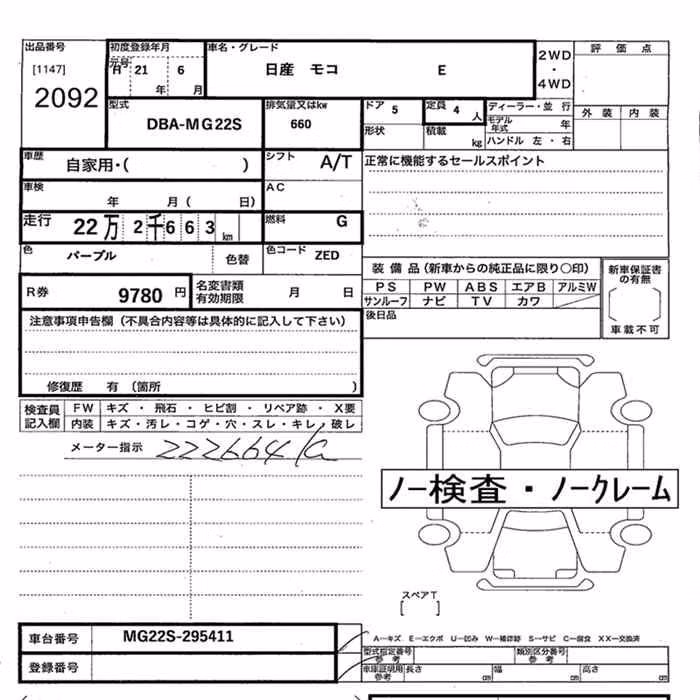 出品番号 初度登録年月 車名・グレード 2WD ・ 4WD 評価点
[1147] 元号 H 21 6 日産 モコ E
2092 年 月 外装 内装
型式 排気量又はkw ドア 5 定員 4 人 ディーラー・並行
DBA-MG22S 660 形状 積載 kg モデル年式 年
ハンドル 左・右
車歴 自家用・( ) シフト A/T 正常に機能するセールスポイント
車検 年 月 ( 日) AC
走行 22万 2千663 km 燃料 G
色 パープル 色替 色コード ZED
装備品(新車からの純正品に限り〇印) 新車保証書の有無
R券 9780 円 名変書類有効期限 月 日 PS PW ABS エアB アルミW
サンルーフ ナビ TV カワ
車載不可
注意事項申告欄(不具合内容等は具体的に記入して下さい) 後日品
修復歴 有 (箇所 )
検査員記入欄 FW キズ・飛石・ヒビ割・リペア跡・X要
内装 キズ・汚レ・コゲ・穴・スレ・キレ・破レ
メーター指示 222664
ノー検査・ノークレーム
スペアT
[ ]
車台番号 MG22S-295411
A―キズ E―エクボ U―凹み W―補修跡 S―サビ C―腐食 XX―交換済
登録番号 型式指定番号 参考 類別区分番号 参考
車庫証明用 参考 長さ cm 幅 cm 高さ cm